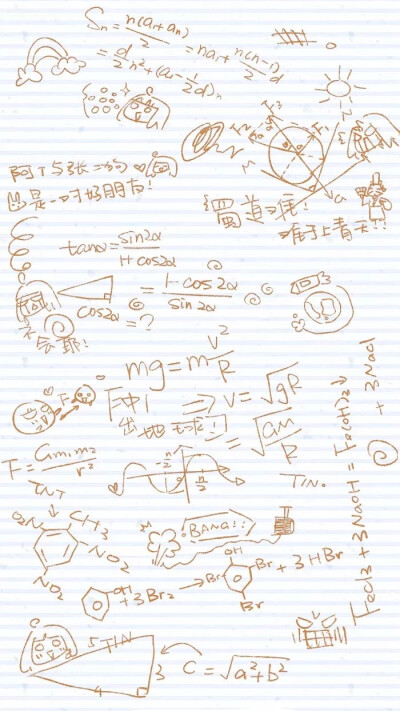 Sn = n(a₁+an)/2 = na₁ + n(n-1)/2 d
= d/2 n² + (a₁ - 1/2 d)n
阿T与张二狗
是一对好朋友!
蜀道难!
难于上青天!!
tanα = sin2α/1+cos2α
= 1-cos2α/sin2α
cos2α = ?
不会耶!
mg = m V²/R
F中1 ⇒ V = √gR
出地球! = √GM/R
F
F = Gm₁m₂/r²
-π/2
π/2
TIN.
TNT
O₂N
CH₃
NO₂
NO₂
BANG!!
OH + 3Br₂ → OH Br Br Br + 3HBr
FeCl₃ + 3NaOH = Fe(OH)₃↓ + 3NaCl
5 TIN
3
4
C = √a²+b²